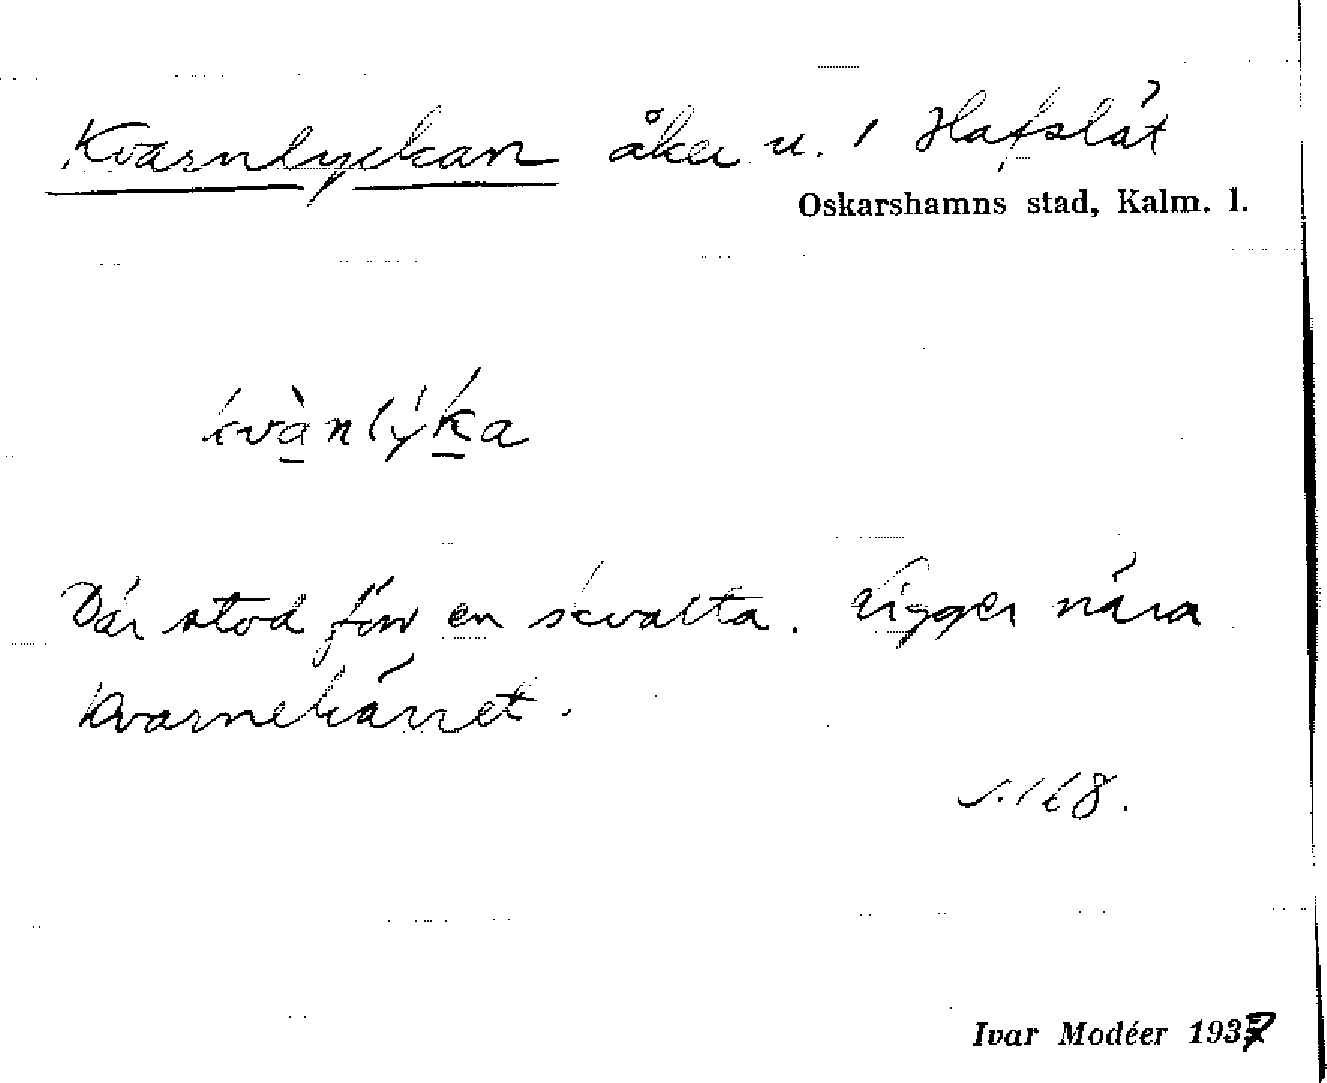 Kvarnlyckan åker u. 1 Hafslät
Oskarshamns stad, Kalm. l.
kvànlýka
Där stod förr en skvalta. Ligger nära
Kvarnekärret.
s. 168.
Ivar Modéer 1937